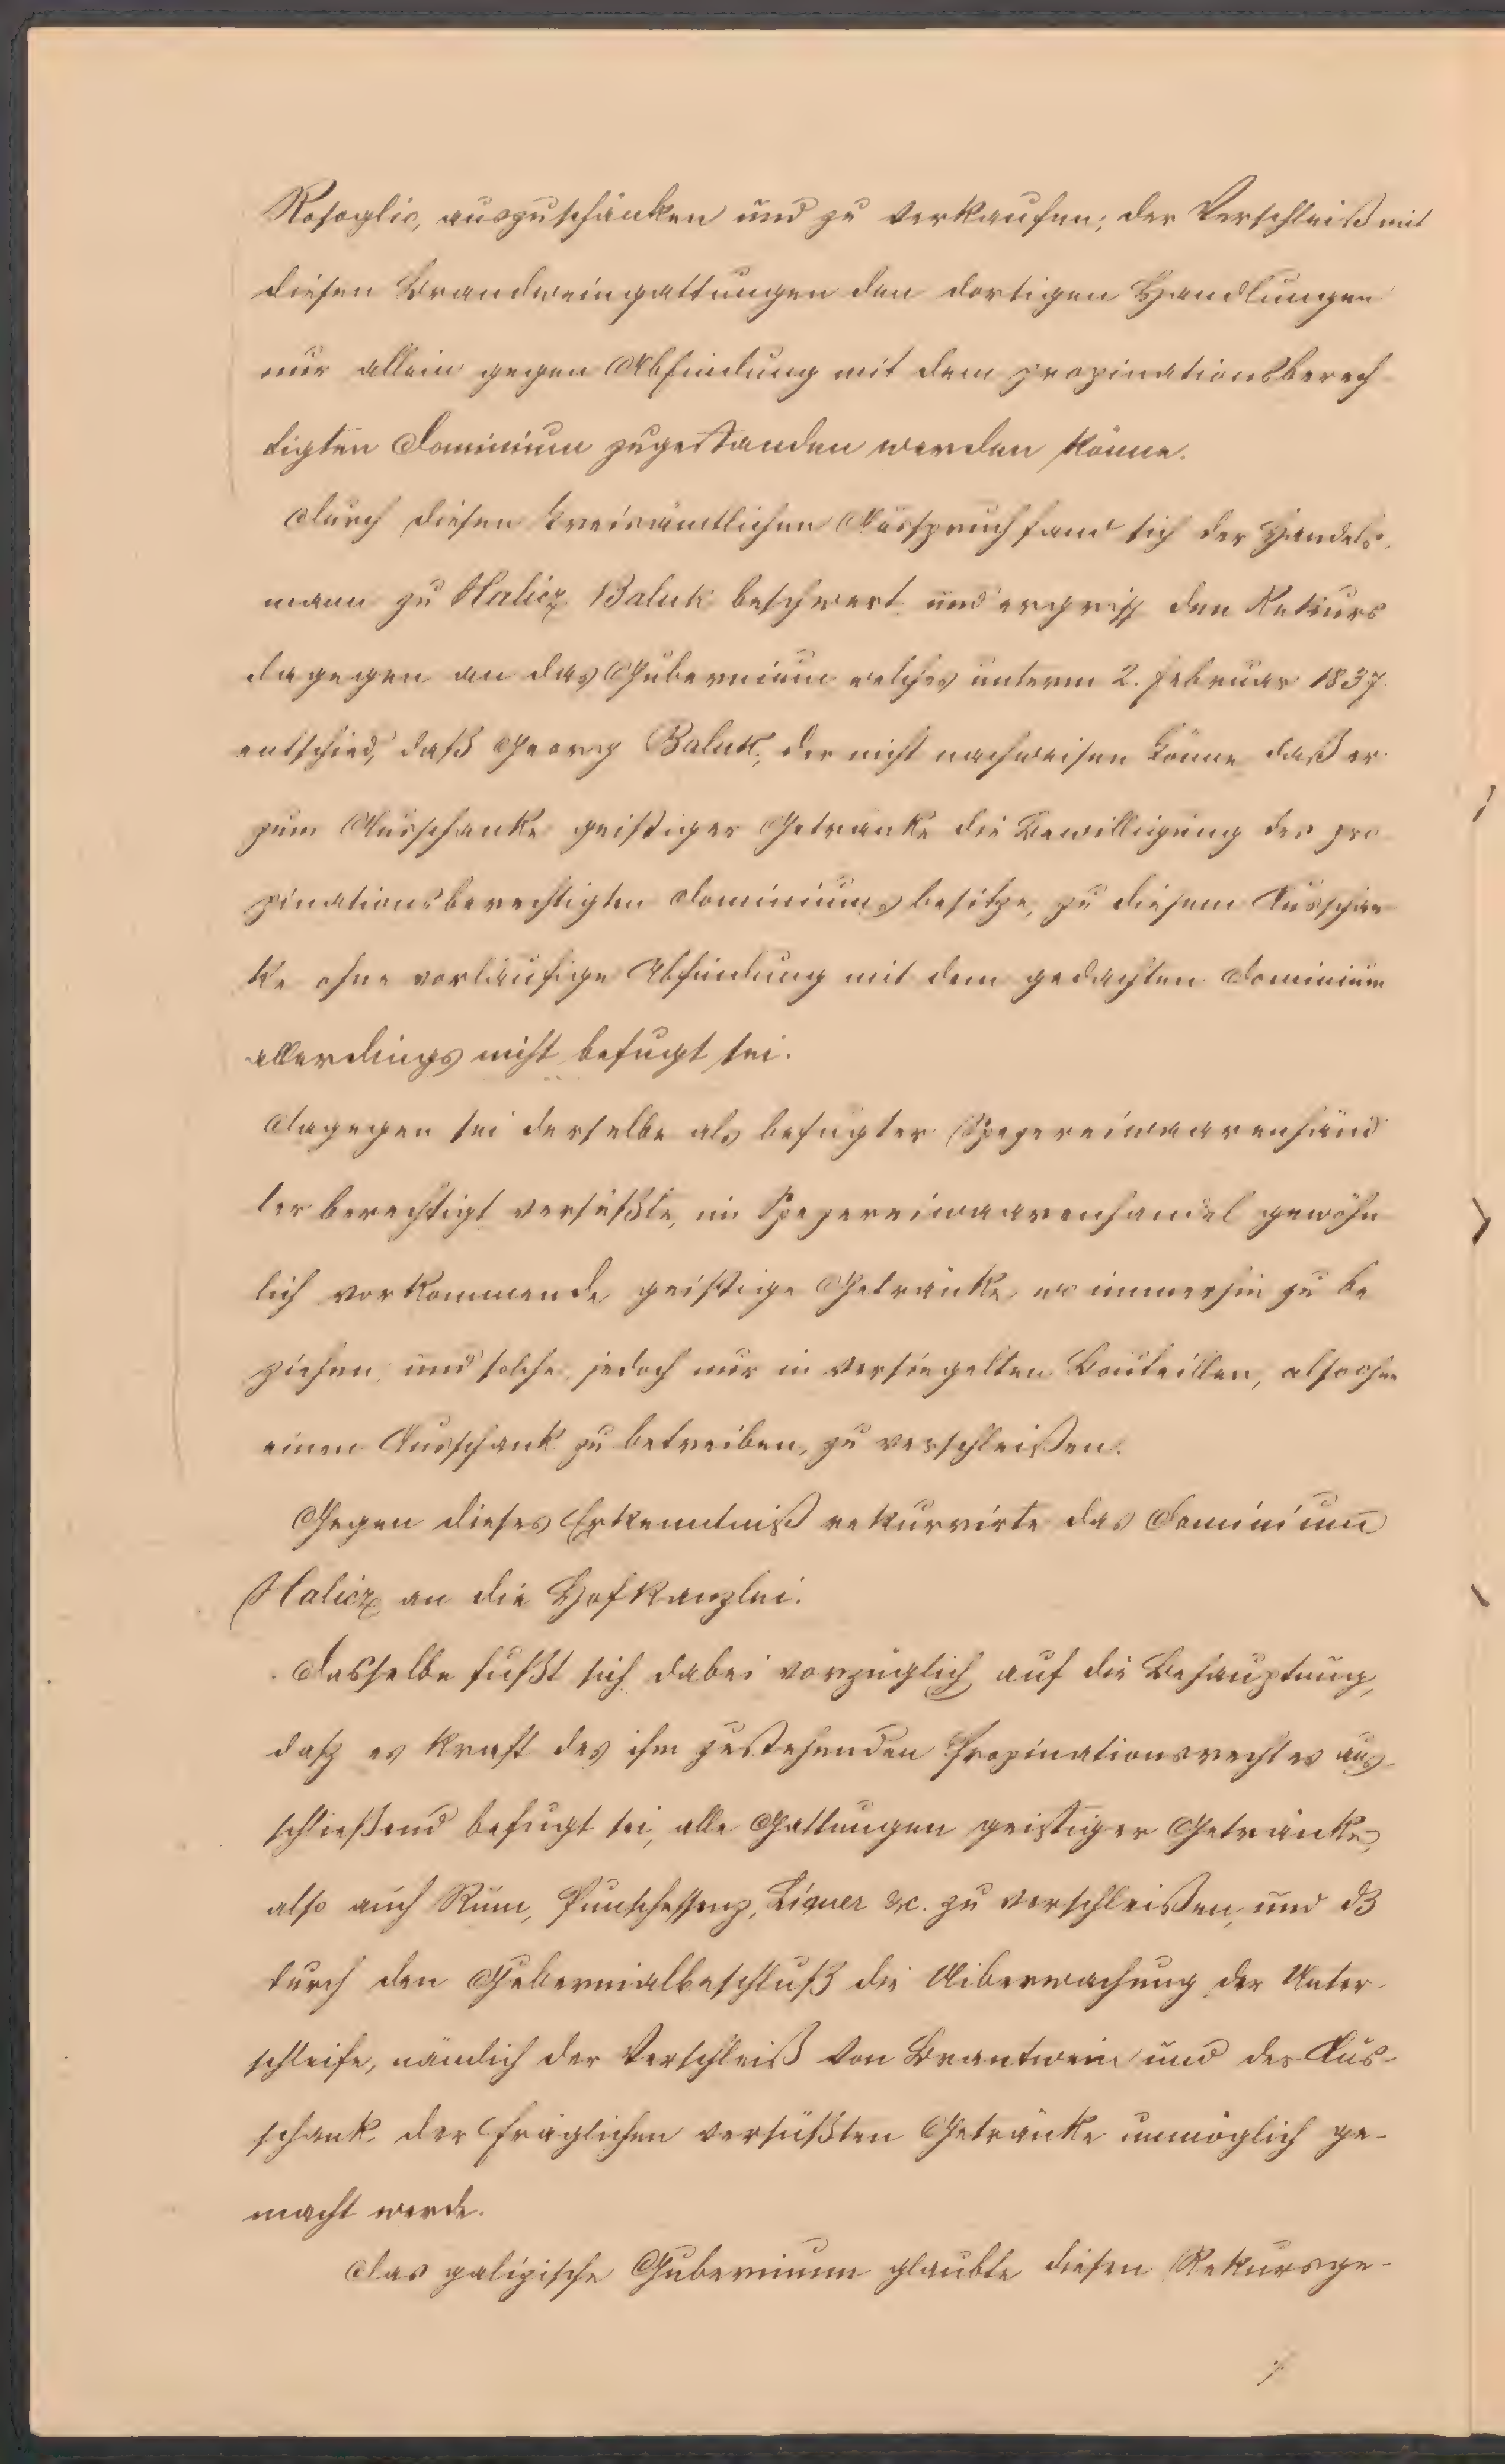 Rosoglio, auszuschänken und zu verkaufen; der Verschleiß mit
diesen Brandweingattungen den dortigen Handlungen
nur allein gegen Abfindung mit dem propinationsberech
tigten Dominium zugestanden werden könne.
Durch diesen kreisämtlichen Ausspruch fand sich der Handels-
mann zu Halicz Baluk beschwert und ergriff den Rekurs
dagegen an das Gubernium welches unterm 2. Februar 1837
entschied, daß Georg Baluk, der nicht nachweisen könne daß er
zum Ausschanke geistiger Getränke die Bewilligung des pro
pinationsberechtigten Dominiums besitze, zu diesem Ausschan
ke ohne vorläufige Abfindung mit dem gedachten Dominium
allerdings nicht befugt sei.
Dagegen sei derselbe als befugter Spezereiwaarenhänd
ler berechtigt versüßte, im Spezereiwaarenhandel gewöhn
lich vorkommende geistige Getränke, wo immerhin zu be
ziehen, und solche, jedoch nur in versiegelten Bouteillen, also ohne
einen Ausschank zu betreiben, zu verschleißen.
Gegen dieses Erkenntniß rekurrirte das Dominium
Halicz an die Hofkanzlei.
Dasselbe fußt sich dabei vorzüglich auf die Behauptung,
daß es kraft des ihm zustehenden Propinationsrechtes aus-
schließend befugt sei, alle Gattungen geistiger Getränke,
also auch Rum, Punschessenz, Liquer &c. zu verschleißen, und dß
durch den Gubernialbeschluß die Uiberwachung der Unter-
schleife, nämlich der Verschleiß von Brantwein und der Aus-
schank der fräglichen versüßten Getränke unmöglich ge-
macht werde.
Das galizische Gubernium glaubte diesen Rekursge-